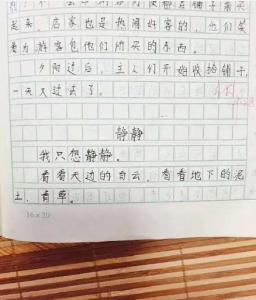 起来。店家也是热闹好客的,他们笑
着为游客包他们所买的东西。
夕阳过后,主人们开始收拾铺子,
一天又过去了。
静静
我只想静静。
看看天边的白云,看看地下的泥
土,看草。
16×20